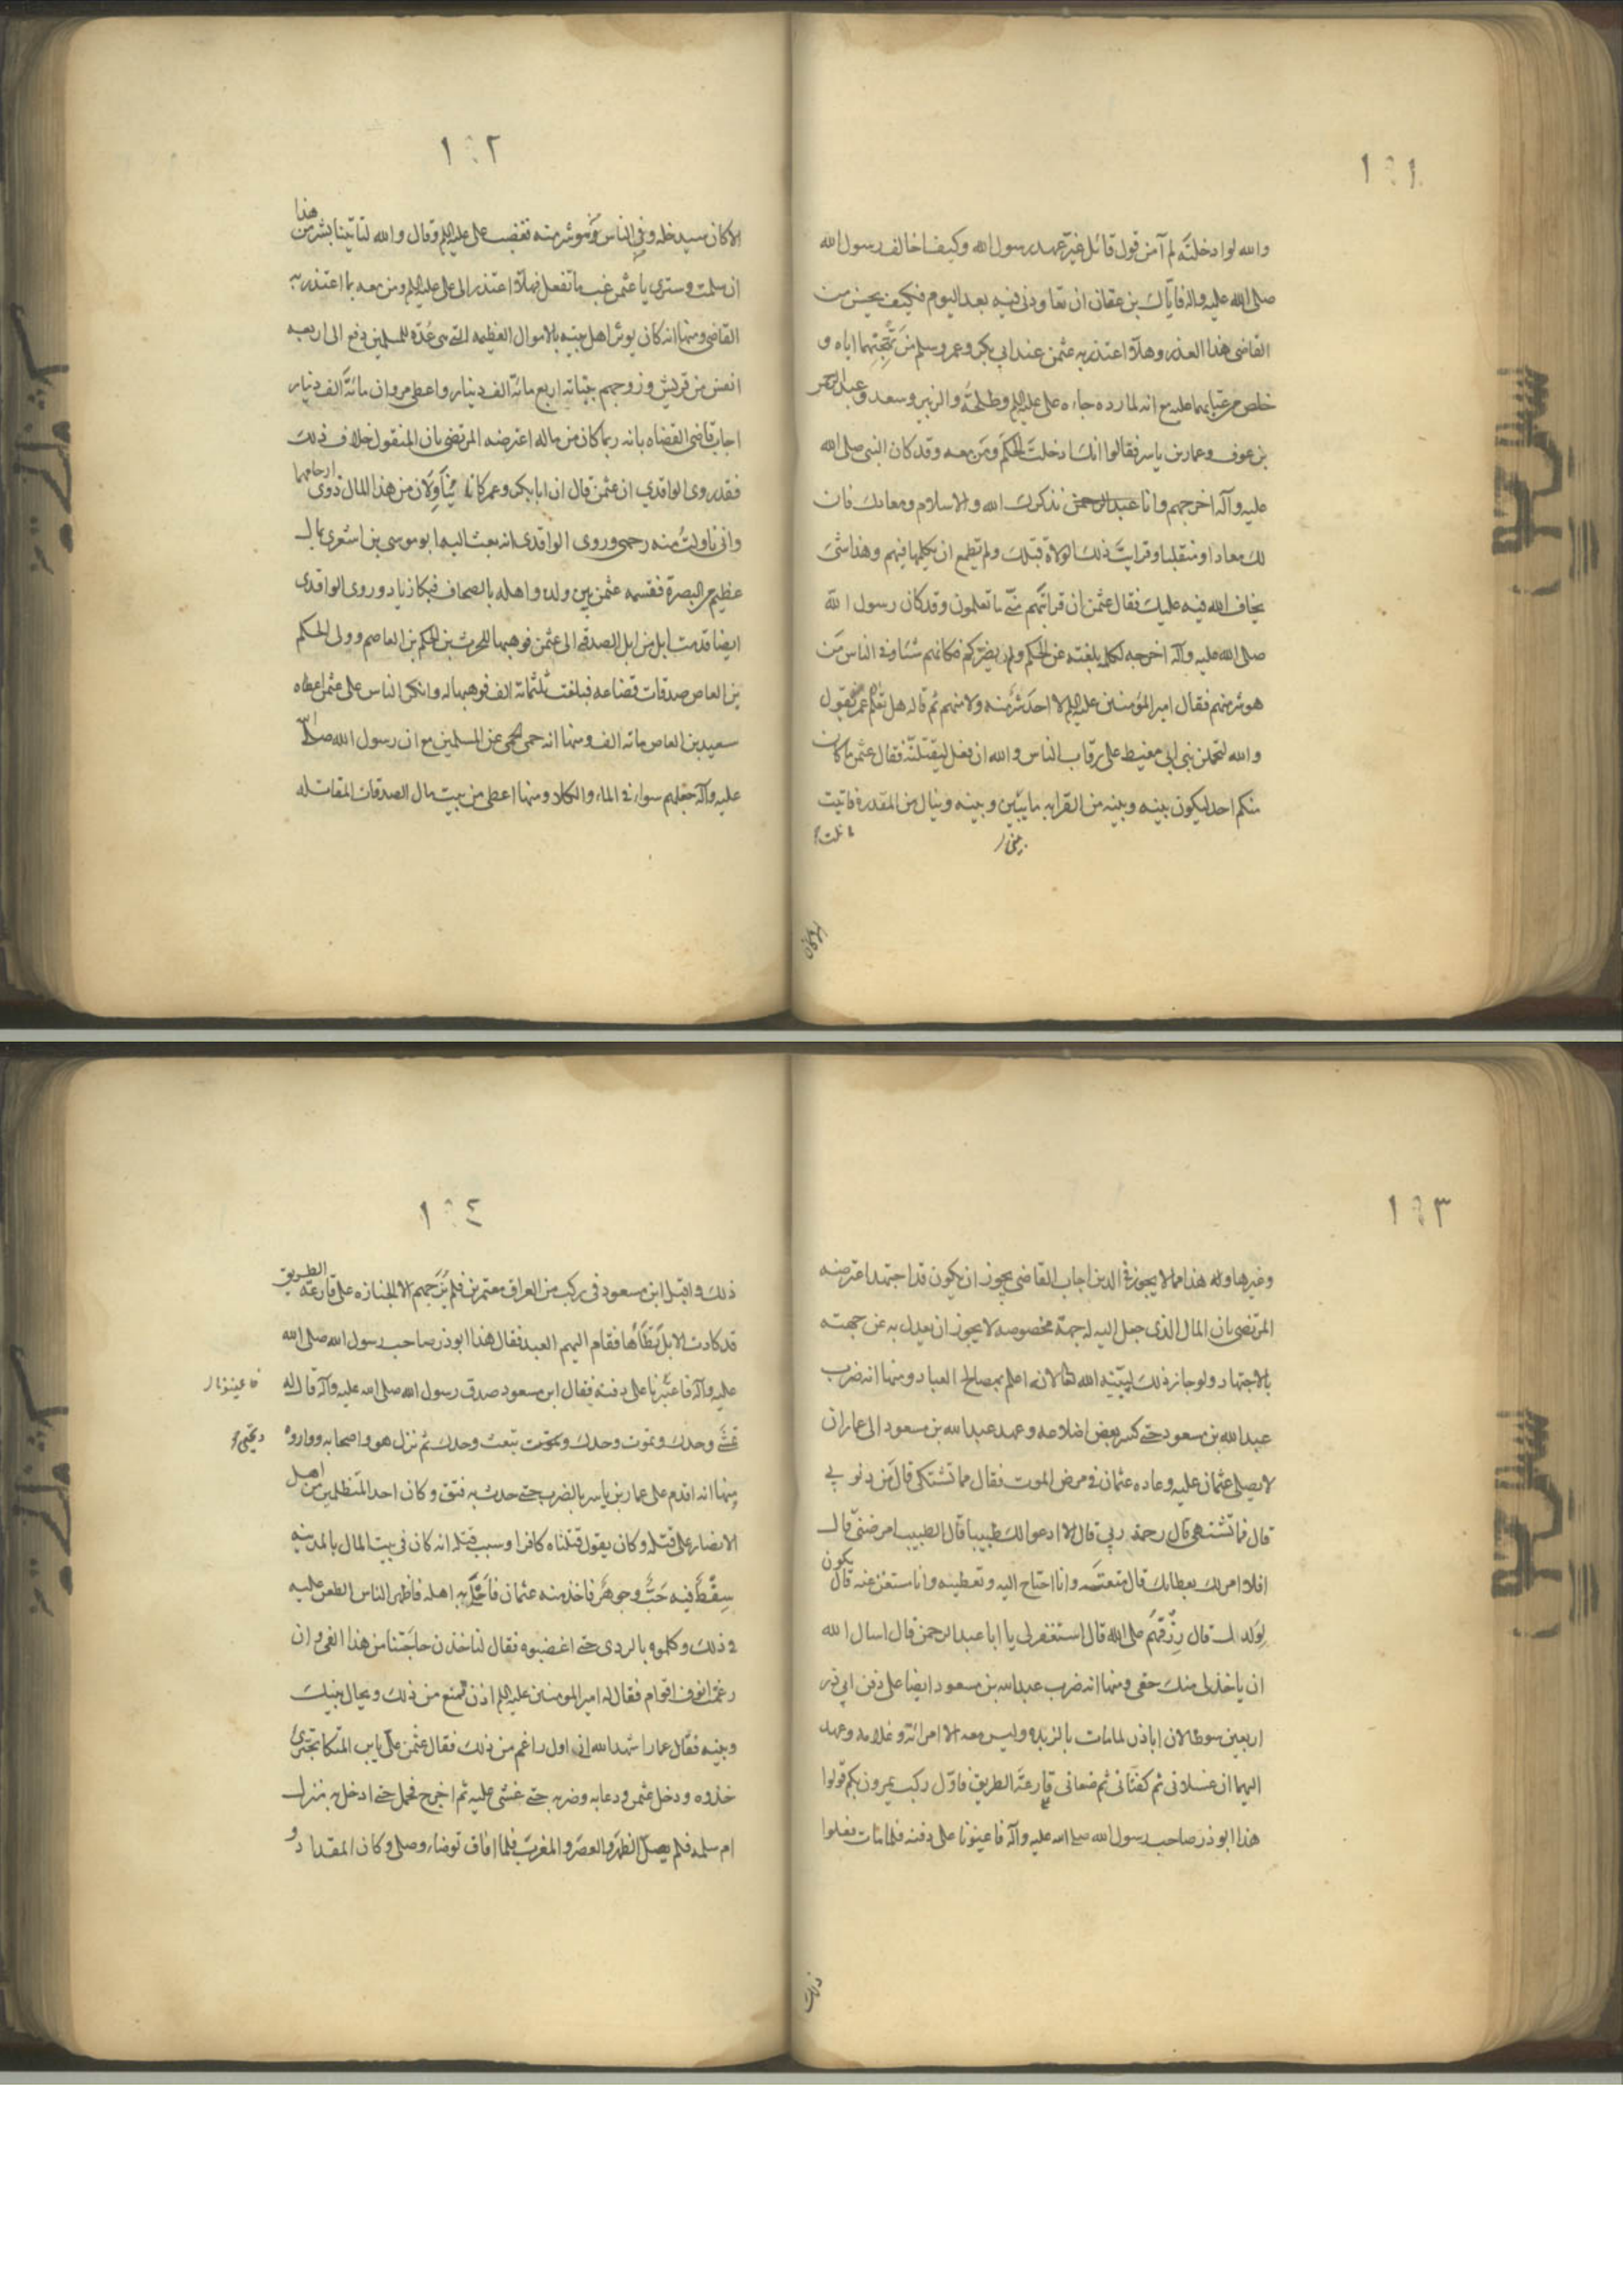 ١٩١
والله لو ادخلته لم آمن قول قائل غيّر عهد رسول الله وكيف اخالف رسول الله
صلى الله عليه واله فاياك بن عفان ان تعاودنى فيه بعد اليوم فكيف يحسن من
القاضى هذا العذر وهلا اعتذر به عثمن عند ابى بكر وعمر وسلم من تهجنهما اياه و
خلص من عتابهما عليه مع انه لما رده جاءه على عليه السلم وطلحة والزبير وسعد وعبد الرحمن
بن عوف وعمار بن ياسر فقالوا انك ادخلت الحكم ومن معه وقد كان النبى صلى الله
عليه وآله اخرجهم وانا نذكرك الله والاسلام ومعادك فان
لك معادا ومنقلبا وقد ابت ذلك الولاة قبلك ولم يطمع ان يكلمها فيهم وهذا شئ
يخاف الله فيه عليك فقال عثمن ان قرابتهم منى ما تعلمون وقد كان رسول الله
صلى الله عليه وآله اخرجه لكلمه بلغته عن الحكم ولن يضركم مكانهم شئا وفى الناس من
هو شر منهم فقال امير المؤمنين عليه السلم لا احد شر منه ولا منهم ثم قال هل تعلم عمر يقول
والله ليحملن بنى ابى معيط على رقاب الناس والله ان فعل ليقتلنه فقال عثمن ما كان
منكم احد ليكون بينه وبينه من القرابه ما بينى وبينه وينال من المقدرة ما نلت
الا كان
١٩٢
الا كان سيدخله وفى الناس من هو شر منه فغضب على عليه السلم وقال والله لتاتينا بشر من هذا
ان سلمت وسترى يا عثمن غب ما تفعل فهلا اعتذر الى على عليه السلم ومن معه بما اعتذر به
القاضى ومنها انه كان يوثر اهل بيته بالاموال العظيمه التى هى عدة للمسلمين دفع الى اربعه
انفس من قريش وزوجهم بناته اربع مائة الف دينار واعطى مروان مائة الف دينار
اجاب قاضى القضاه بانه ربما كان من ماله اعترضه المرتضى بان المنقول خلاف ذلك
فقد روى الواقدى ان عثمن قال ان ابا بكر وعمر كانا يتأولان من هذا المال ذوى ارحامهما
وانى ناولت منه رحمى وروى الواقدى انه بعث اليه ابو موسى بن اشعرى بمال
عظيم من البصرة فقسمه عثمن بين ولده واهله بالصحاف فبكا زياد وروى الواقدى
ايضا قدمت ابل من ابل الصدقه الى عثمن فوهبها للحرث بن الحكم بن العاصم وولى الحكم
بن العاص صدقات قضاعه فبلغت ثلثمائة الف فوهبها له وانكر الناس على عثمن اعطاه
سعيد بن العاص مائه الف ومنها انه حمى الحمى عن المسلمين مع ان رسول الله صلى الله
عليه وآله جعلهم سواء فى الماء والكلاء ومنها اعطى من بيت مال الصدقات المقاتله
١٩٣
وغيرها وله هذا مما لا يجوز فى الدين اجاب القاضى يجوز ان يكون قد اجتهد اعترضه
المرتضى بان المال الذى جعل اليه له جهة مخصوصه لا يجوز ان يعدل به عن جهته
بالاجتهاد ولو جاز ذلك لبينه الله تعالى لانه اعلم بمصالح العباد ومنها انه ضرب
عبد الله بن مسعود حتى كسر بعض اضلاعه وعهد عبد الله بن مسعود الى عمار ان
لا يصلى عثمان عليه وعاده عثمان فى مرض الموت فقال مما تشتكى قال من ذنوبى
قال فما تشتهى قال رحمة ربى قال الا ادعوا لك طبيبا قال الطبيب امرضنى قال
افلا امر لك بعطائك قال منعتنيه وانا احتاج اليه وتعطينيه وانا مستغن عنه قال يكون
لولدك قال رزقهم على الله قال استغفر لى يا ابا عبد الرحمن قال اسال الله
ان ياخذ لى منك حقى ومنها انه ضرب عبد الله بن مسعود ايضا على دفن ابى ذر
اربعين سوطا لان اباذر لما مات بالربذه وليس معه الا امراته وغلامه وعهد
اليهما ان غسلانى ثم كفنانى ثم ضعانى على قارعة الطريق فاول ركب يمرون بكم قولوا
هذا ابو ذر صاحب رسول الله صلى الله عليه وآله فاعينونا على دفنه فلما مات فعلوا
ذلك
١٩٤
ذلك واقبل ابن مسعود فى ركب من العراق معتمرين فلم يرعهم الا الجنازه على قارعة الطريق
قد كادت الابل تطأها فقام اليهم العبد فقال هذا ابو ذر صاحب رسول الله صلى الله
عليه وآله فاعينونا على دفنه فقال ابن مسعود صدق رسول الله صلى الله عليه وآله قال له
تمشى وحدك وتموت وحدك وتبعث وحدك ثم نزل هو واصحابه وواروه
ومنها انه اقدم على عمار بن ياسر بالضرب حتى حدث به فتق وكان احد المتظلمين من اهل
الامصار على قتله وكان يقول قتلناه كافرا وسبب قتله انه كان فى بيت المال بالمدينه
سفط فيه حلى وجوهر فاخذ منه عثمان فاحلى به اهله فاظهر الناس الطعن عليه
فى ذلك وكلموه بالردى حتى اغضبوه فقال لناخذن حاجتنا من هذا الفىء وان
رغمت انوف اقوام فقال له امير المومنين عليه السلم اذن تمنع من ذلك ويحال بينك
وبينه فقال عمار اشهد الله انى اول راغم من ذلك فقال عثمن على يابن المتكا تجترئ
خذوه ودخل عثمن ودعا به وضربه حتى غشى عليه ثم اخرج فحمل حتى ادخل به منزل
ام سلمه فلم يصل الظهر والعصر والمغرب فلما افاق توضاء وصلى وكان المقداد و